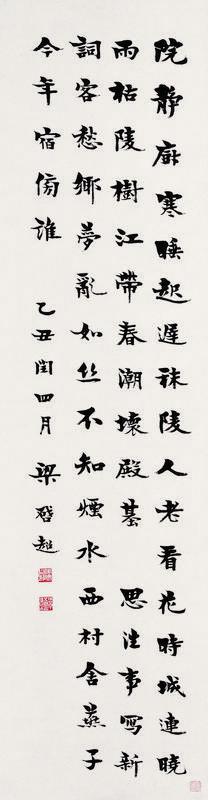 院靜厨寒睡起遲秣陵人老看花時城連曉
雨枯陵樹江帶春潮壞殿基 思往事寫新
詞客愁鄉夢亂如丝不知煙水西村舍燕子
今年宿傍誰 乙丑閏四月 梁啓超